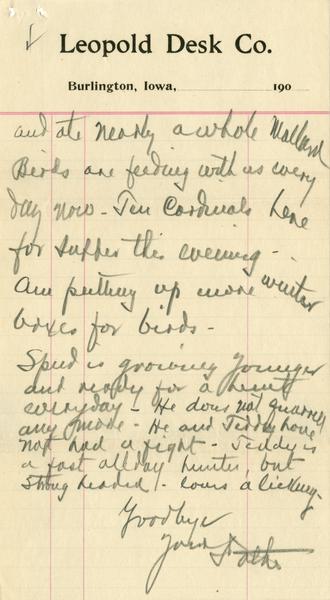 Leopold Desk Co.
Burlington, Iowa, 190
and ate nearly a whole Mallard
Birds are feeding with us every
day now - Ten Cardinals here
for supper this evening -
Am putting up more winter
boxes for birds -
Spud is growing younger
and ready for a hunt
everyday - He does not quarrel
any more - He and Teddy have
not had a fight - Teddy is
a fast all day hunter, but
strong headed - a licking -
Goodbye
Your Father